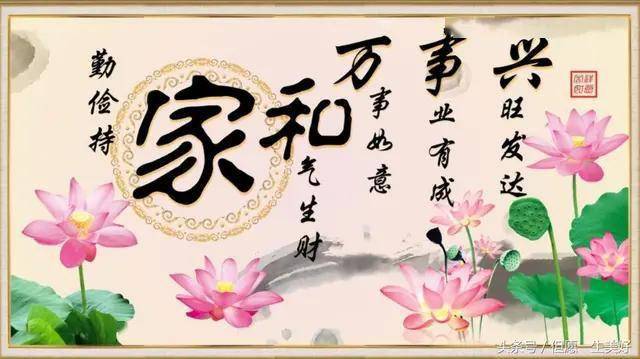 勤俭持家
和气生财
万事如意
事业有成
兴旺发达
头条号 / 但愿一生美好